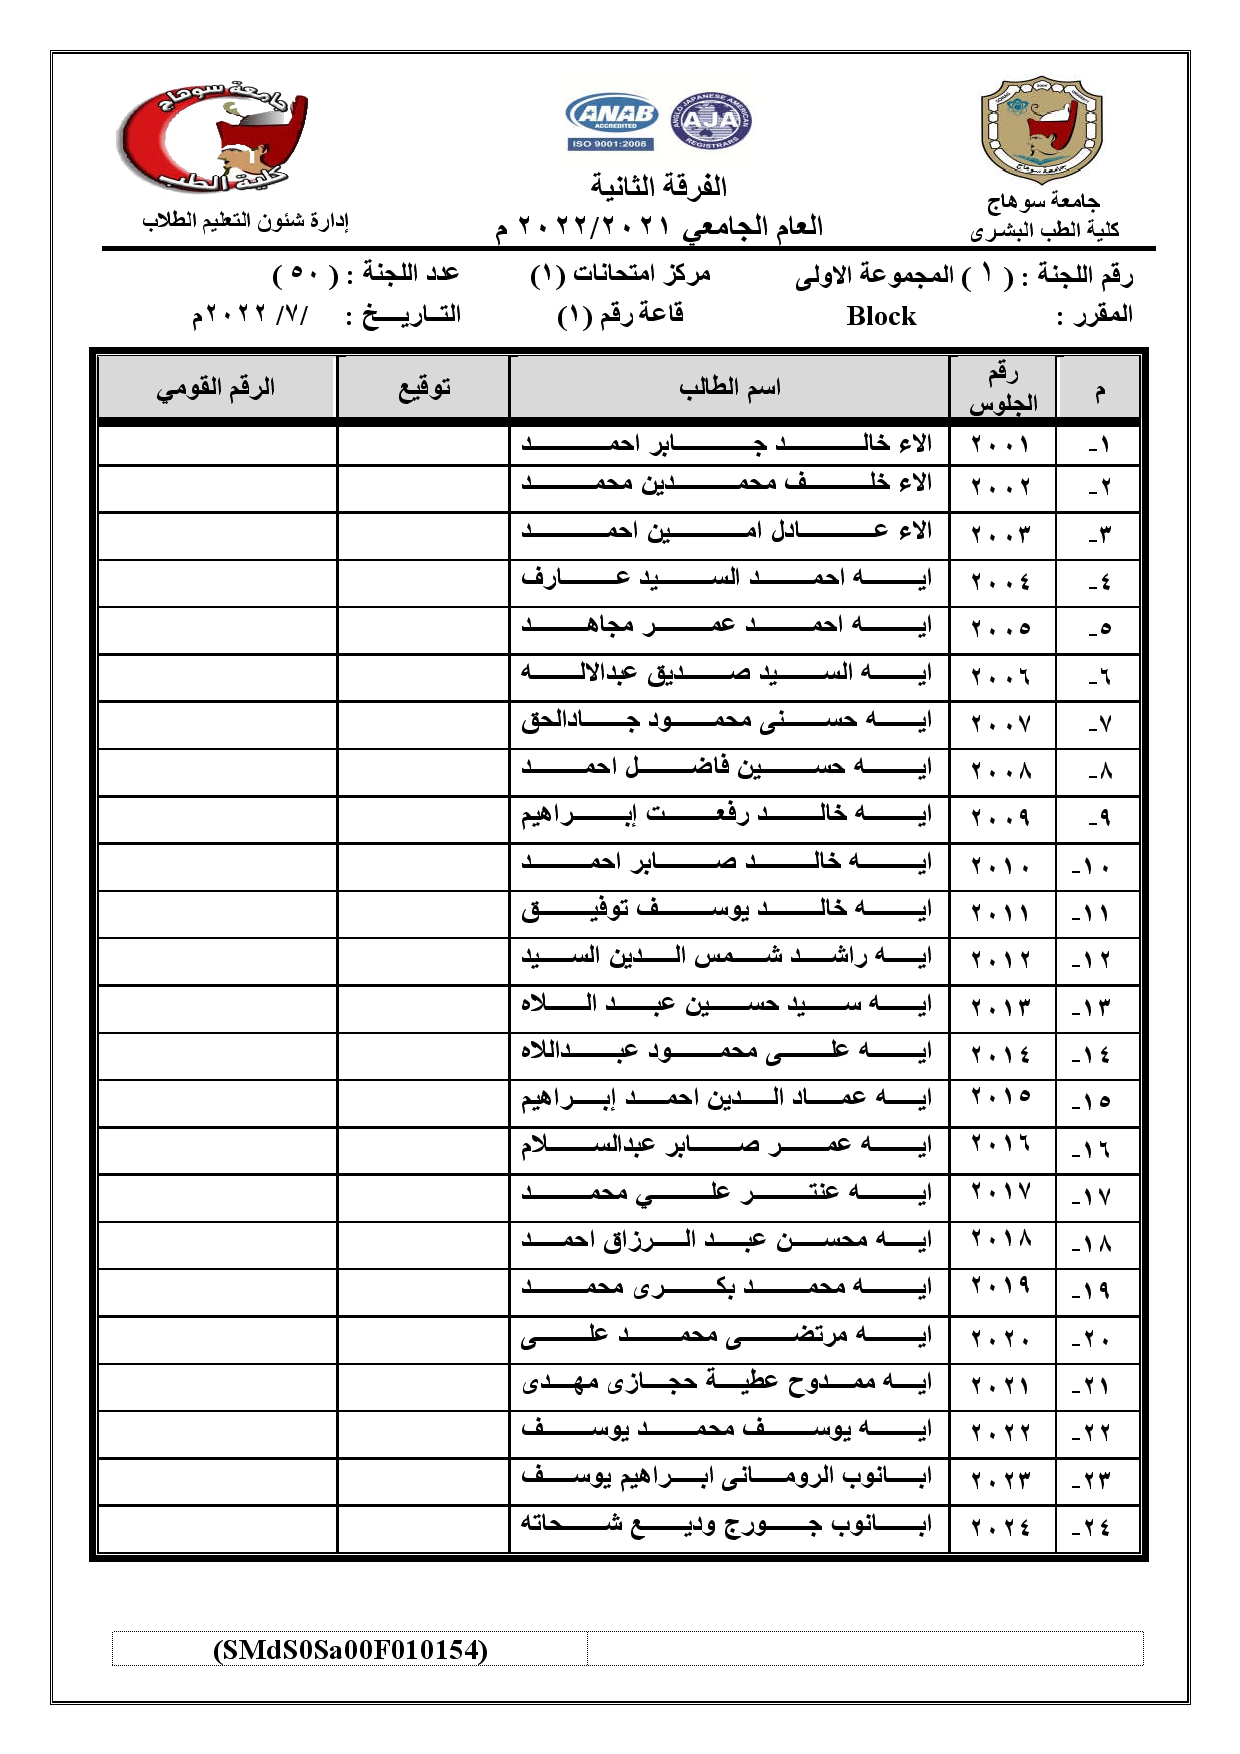 جامعة سوهاج
كلية الطب
ANAB
ACCREDITED
ISO 9001:2008
ANGLO JAPANESE AMERICAN
AJA
REGISTRARS
جامعة سوهاج
جامعة سوهاج
كلية الطب البشرى
الفرقة الثانية
العام الجامعي ٢٠٢٢/٢٠٢١ م
إدارة شئون التعليم الطلاب
رقم اللجنة : ( ١ ) المجموعة الاولى مركز امتحانات (١) عدد اللجنة : ( ٥٠ )
المقرر : Block قاعة رقم (١) التـاريـــخ : /٧/ ٢٠٢٢م
م رقم الجلوس اسم الطالب توقيع الرقم القومي
١- ٢٠٠١ الاء خالد جابر احمد
٢- ٢٠٠٢ الاء خلف محمدين محمد
٣- ٢٠٠٣ الاء عادل امين احمد
٤- ٢٠٠٤ ايه احمد السيد عارف
٥- ٢٠٠٥ ايه احمد عمر مجاهد
٦- ٢٠٠٦ ايه السيد صديق عبدالاله
٧- ٢٠٠٧ ايه حسنى محمود جادالحق
٨- ٢٠٠٨ ايه حسين فاضل احمد
٩- ٢٠٠٩ ايه خالد رفعت إبراهيم
١٠- ٢٠١٠ ايه خالد صابر احمد
١١- ٢٠١١ ايه خالد يوسف توفيق
١٢- ٢٠١٢ ايه راشد شمس الدين السيد
١٣- ٢٠١٣ ايه سيد حسين عبد اللاه
١٤- ٢٠١٤ ايه على محمود عبداللاه
١٥- ٢٠١٥ ايه عماد الدين احمد إبراهيم
١٦- ٢٠١٦ ايه عمر صابر عبدالسلام
١٧- ٢٠١٧ ايه عنتر علي محمد
١٨- ٢٠١٨ ايه محسن عبد الرزاق احمد
١٩- ٢٠١٩ ايه محمد بكرى محمد
٢٠- ٢٠٢٠ ايه مرتضى محمد على
٢١- ٢٠٢١ ايه ممدوح عطية حجازى مهدى
٢٢- ٢٠٢٢ ايه يوسف محمد يوسف
٢٣- ٢٠٢٣ ابانوب الرومانى ابراهيم يوسف
٢٤- ٢٠٢٤ ابانوب جورج وديع شحاته
(SMdS0Sa00F010154)